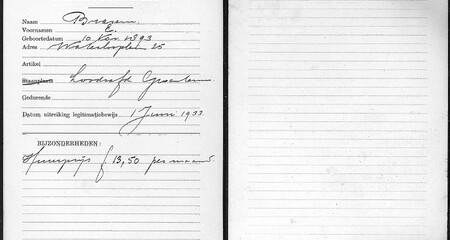 Naam Bragem
Voornamen E.
Geboortedatum 10 Nov. 1893
Adres Waterlooplein 25
Artikel
Staanplaats
Gedurende
Datum uitreiking legitimatiebewijs 1 Juni 1933
BIJZONDERHEDEN:
Huurprijs f 13,50 per maand.